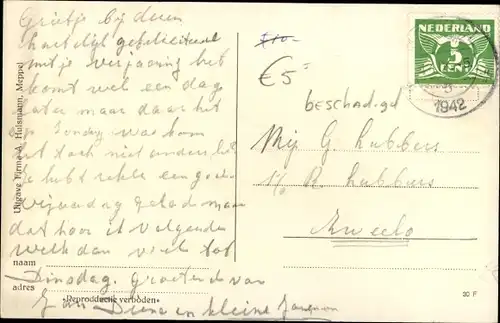 Grietje bij deren
hartelijk gefeliciteerd
met je verjaaring het
komt wel een dag
later maar daar het
op Zondag was kom
het toch niet anders he
Je hebt zekke een goe
verjaardag gehad maar
dat hoor ik volgende
week dan wel tot
naam
Dinsdag. Groetend van
adres
Jan Diena en kleine
«Reproductie verboden»
Uitgave Firma A. Huismann, Meppel
€5
beschadigd
NEDERLAND
5
CENT
1942
Mej G Lubbers
p/a R Lubbers
Zweelo
30 F